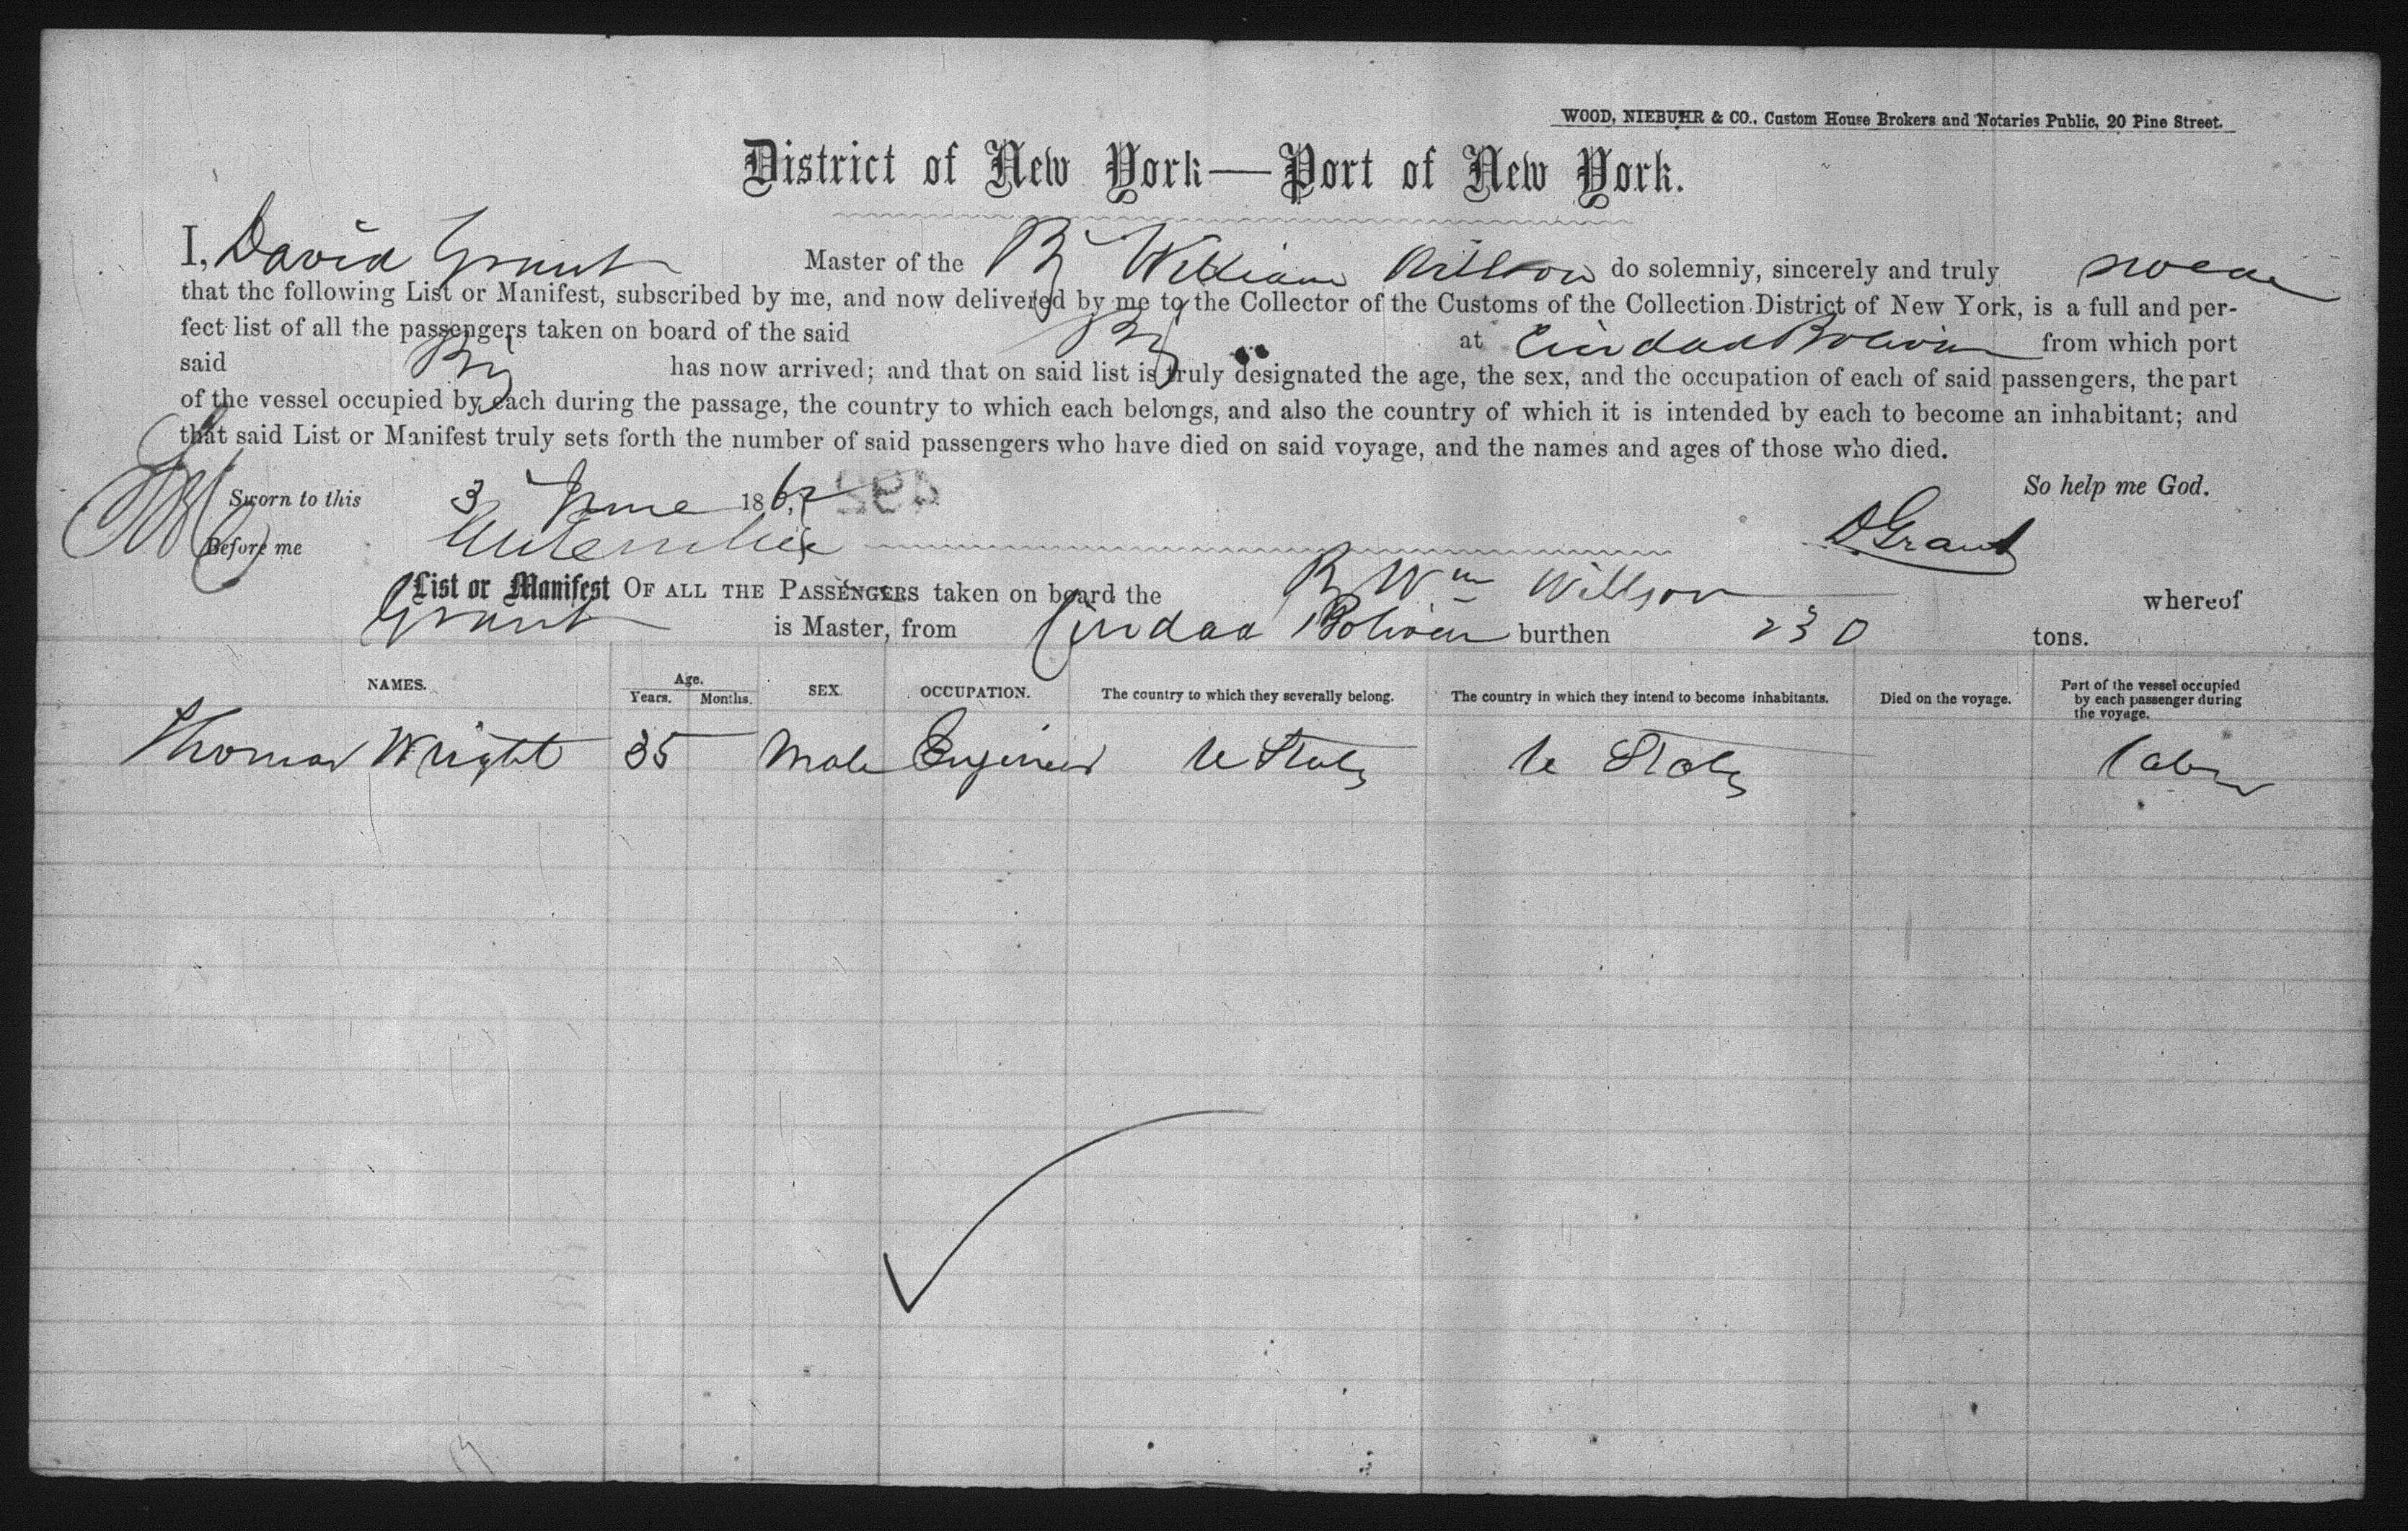 WOOD, NIEBUHR & CO., Custom House Brokers and Notaries Public, 20 Pine Street.
District of New York—Port of New York.
I, David Grant Master of the Bg William Willson do solemnly, sincerely and truly swear
that the following List or Manifest, subscribed by me, and now delivered by me to the Collector of the Customs of the Collection District of New York, is a full and per-
fect list of all the passengers taken on board of the said Bg at Ciudad Bolivar from which port
said Bg has now arrived; and that on said list is truly designated the age, the sex, and the occupation of each of said passengers, the part
of the vessel occupied by each during the passage, the country to which each belongs, and also the country of which it is intended by each to become an inhabitant; and
that said List or Manifest truly sets forth the number of said passengers who have died on said voyage, and the names and ages of those who died.
So help me God.
Sworn to this 3 June 1862
Before me D Grant
List or Manifest OF ALL THE PASSENGERS taken on board the B Wm Willson whereof
Grant is Master, from Ciudad Bolivar burthen 230 tons.
NAMES. Age. Years. Months. SEX. OCCUPATION. The country to which they severally belong. The country in which they intend to become inhabitants. Died on the voyage. Part of the vessel occupied by each passenger during the voyage.
Thomas Wright 35 Male Engineer U States U States Cabin